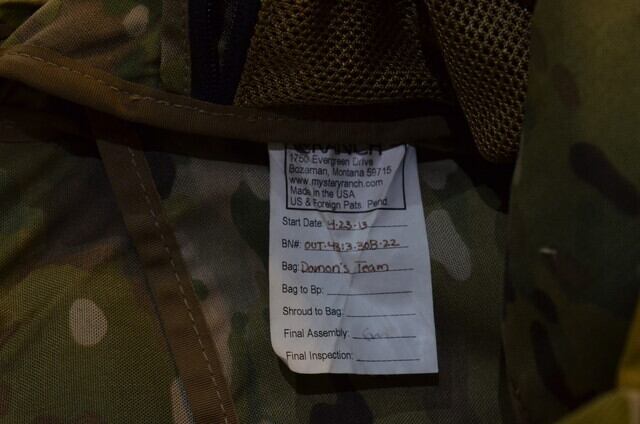 RANCH
1750 Evergreen Drive
Bozeman, Montana 59715
www.mysteryranch.com
Made in the USA
US & Foreign Pats. Pend
Start Date: 4-23-13
BN#: OUT-4313-30B-22
Bag: Damon's Team
Bag to Bp:
Shroud to Bag:
Final Assembly:
Final Inspection: